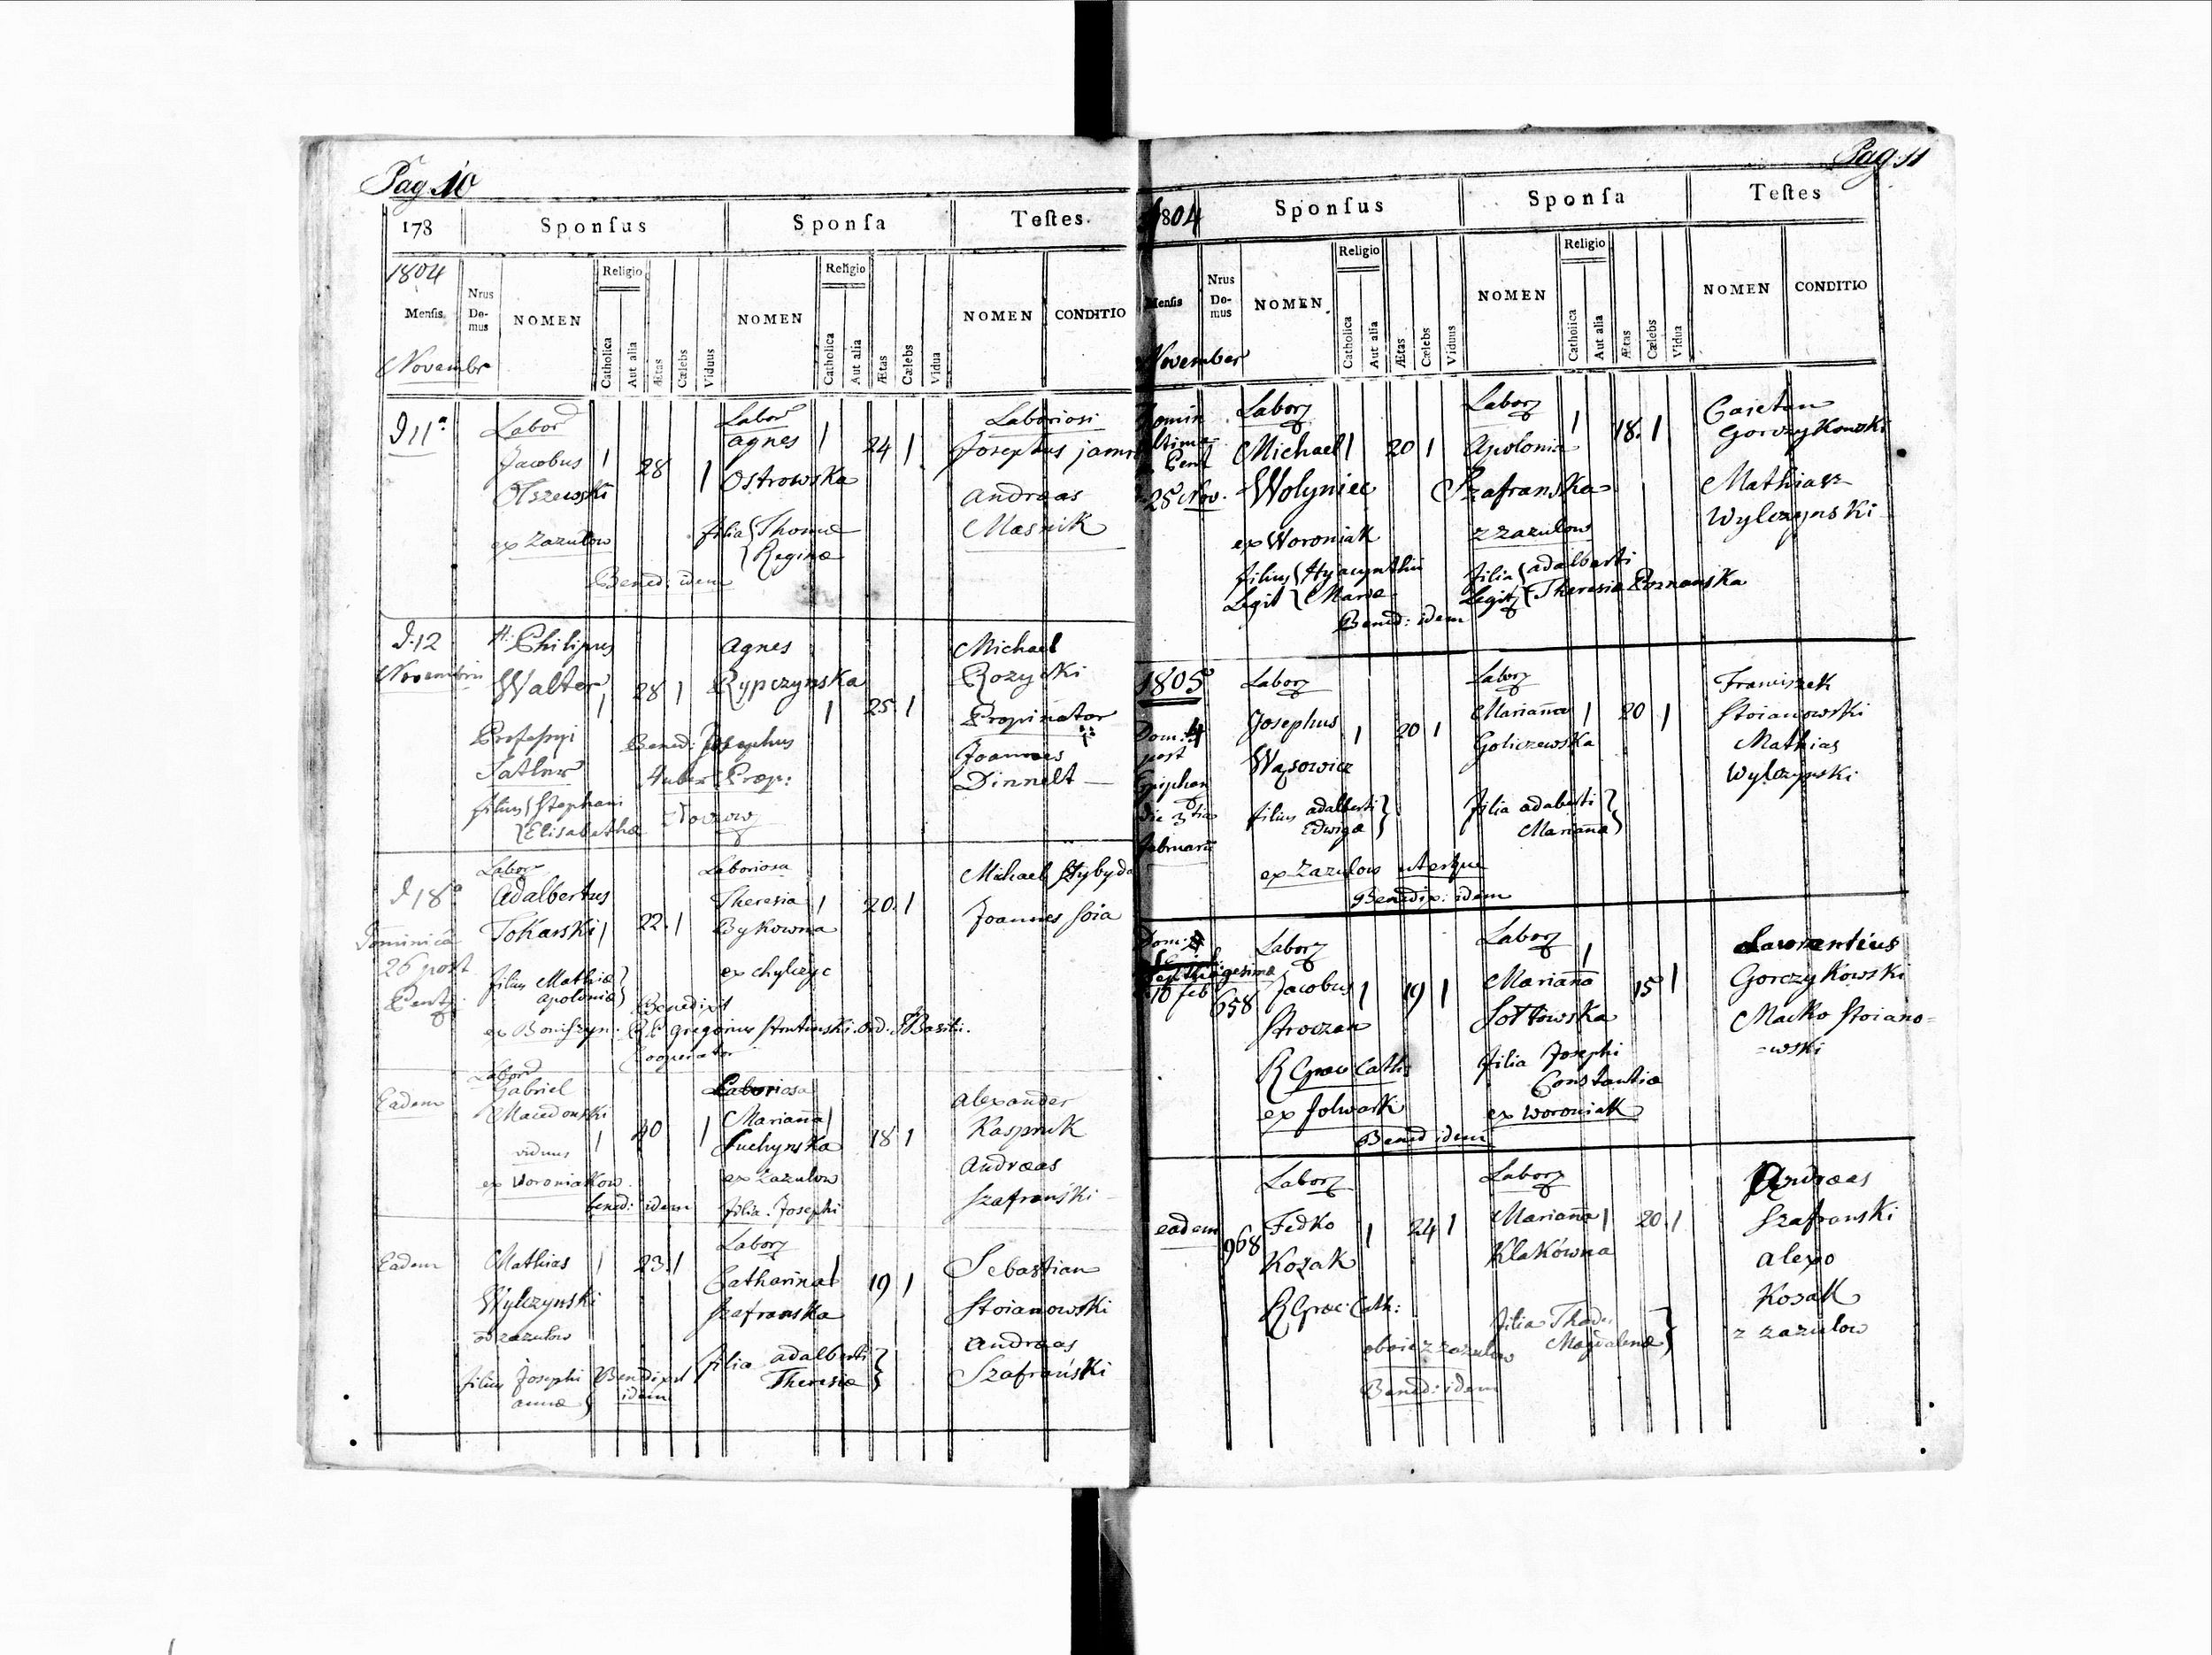 Pag. 10
178
Sponsus
Sponsa
Testes.
1804
Mensis
Novembr
Nrus Do-mus
NOMEN
Religio
Catholica
Aut alia
Ætas
Cælebs
Viduus
NOMEN
Religio
Catholica
Aut alia
Ætas
Cælebs
Vidua
NOMEN
CONDITIO
D 11a
Labor
Jacobus 1 28 1
Olszewski
ex Zazulow
Labor
Agnes 1 24 1
Ostrowska
filia Thomæ
Reginæ
Bened: idem
Laboriosi
Josephus
Andræas
Masnik
D. 12
Novembris
H: Philippus
Walter 1 28 1
Professyi
Satler
filius Stephani
Elisabethæ
Agnes
Rypczynska
1 25. 1
Bened: Josephus
Huber Præp:
Michael
Rozycki
Propinator
Joannes
Dinnelt
D 18a
Dominica
26 post
Pent
Labor
Adalbertus
Tokarski 1 22. 1
filius Mathiæ
Apoloniæ
ex Boniszyn
Laboriosa
Theresia 1 20. 1
Bykowna
ex Chylczyc
Benedixit
Gregorius
Ord. S. Basili.
Cooperator
Michael Stybyda
Joannes Soia
Eadem
Labor
Gabriel
Macedonski
1 40 1
viduus
ex Woroniakow
Laboriosa
Marianna 1
Suchynska 18 1
ex Zazulow
filia Josephi
bened: idem
Alexander
Kaspruk
Andræas
Szafrański
Eadem
Mathias 1 23. 1
Wylczynski
od zazulow
filius Josephi
annæ
Labor
Catharina 1 19 1
Szafranska
filia adalberti
Theresiæ
Benedixit
idem
Sebastian
Stoianowski
Andræas
Szafrański
Pag. 11
1804
Sponsus
Sponsa
Testes
Mensis
November
Nrus Do-mus
NOMEN
Religio
Catholica
Aut alia
Ætas
Cælebs
Viduus
NOMEN
Religio
Catholica
Aut alia
Ætas
Cælebs
Vidua
NOMEN
CONDITIO
Domin
ultima
Pent
25 Nov.
Labor
Michael 1 20 1
Wolyniec
ex Woroniak
filius Hyacynthii
Legit Mariæ
Labor
Apolonia 1 18. 1
Szafranska
z zazulow
filia adalberti
Legit Theresiæ Poznanska
Bened: idem
Caietan
Gorczykowski
Mathiasz
Wylczynski
1805
Dom: 4
post
Epiphan
die 3tia
februarii
Labor
Josephus 1 20 1
Wąsowicz
filius adalberti
Edwigæ
Labor
Marianna 1 20 1
Goliczewska
filia adalberti
Mariannæ
ex Zazulow uterque
Benedix: idem
Franciszek
Stoianowski
Mathias
Wylczynski
Dom:
Septuagesimæ
10 feb
658
Labor
Jacobus 1 19 1
Stroczan
R Græc Cath:
ex folwark
Labor
Marianna 1 15 1
Sottowska
filia Josephi
Constantiæ
ex woroniak
Bened idem
Lawrentius
Gorczykowski
Macko Stoiano=
=wski
eadem
968
Labor
Fedko 1 24 1
Kozak
R Græc: Cath:
Labor
Marianna 1 20. 1
Klakówna
filia Thadei
Magdalenæ
oboie z zazulow
Bened: idem
Andræas
Szafranski
Alexo
Kosak
z zazulow